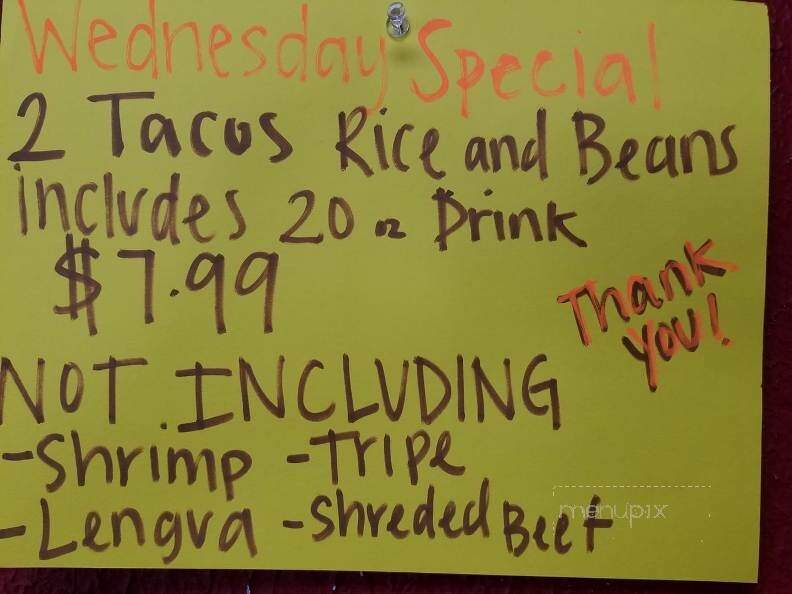 Wednesday Special
2 Tacos Rice and Beans
includes 20 oz Drink
$7.99
Thank
you!
NOT INCLUDING
-Shrimp -Tripe
-Lengua -Shreded Beef
menupix